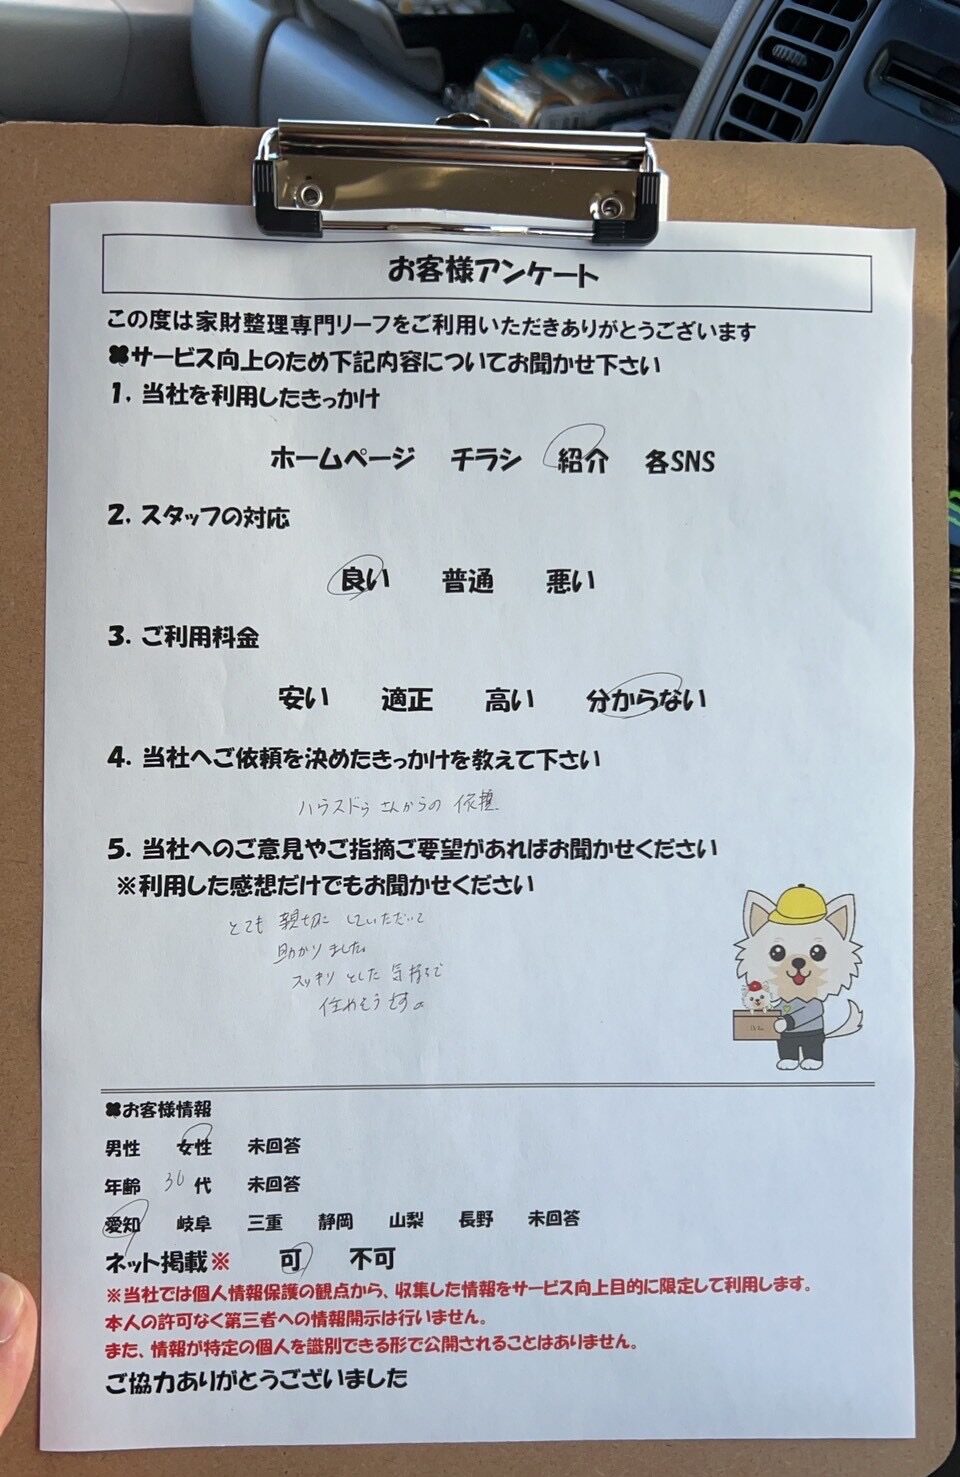 お客様アンケート
この度は家財整理専門リーフをご利用いただきありがとうございます
✤サービス向上のため下記内容についてお聞かせ下さい
1. 当社を利用したきっかけ
ホームページ チラシ 紹介 各SNS
2. スタッフの対応
良い 普通 悪い
3. ご利用料金
安い 適正 高い 分からない
4. 当社へご依頼を決めたきっかけを教えて下さい
ハウスドゥさんからの依頼
5. 当社へのご意見やご指摘ご要望があればお聞かせください
※利用した感想だけでもお聞かせください
とても親切にしていただいて
助かりました。
スッキリとした気持ちで
住めそうです。
✤お客様情報
男性 女性 未回答
年齢 30代 未回答
愛知 岐阜 三重 静岡 山梨 長野 未回答
ネット掲載※ 可 不可
※当社では個人情報保護の観点から、収集した情報をサービス向上目的に限定して利用します。
本人の許可なく第三者への情報開示は行いません。
また、情報が特定の個人を識別できる形で公開されることはありません。
ご協力ありがとうございました